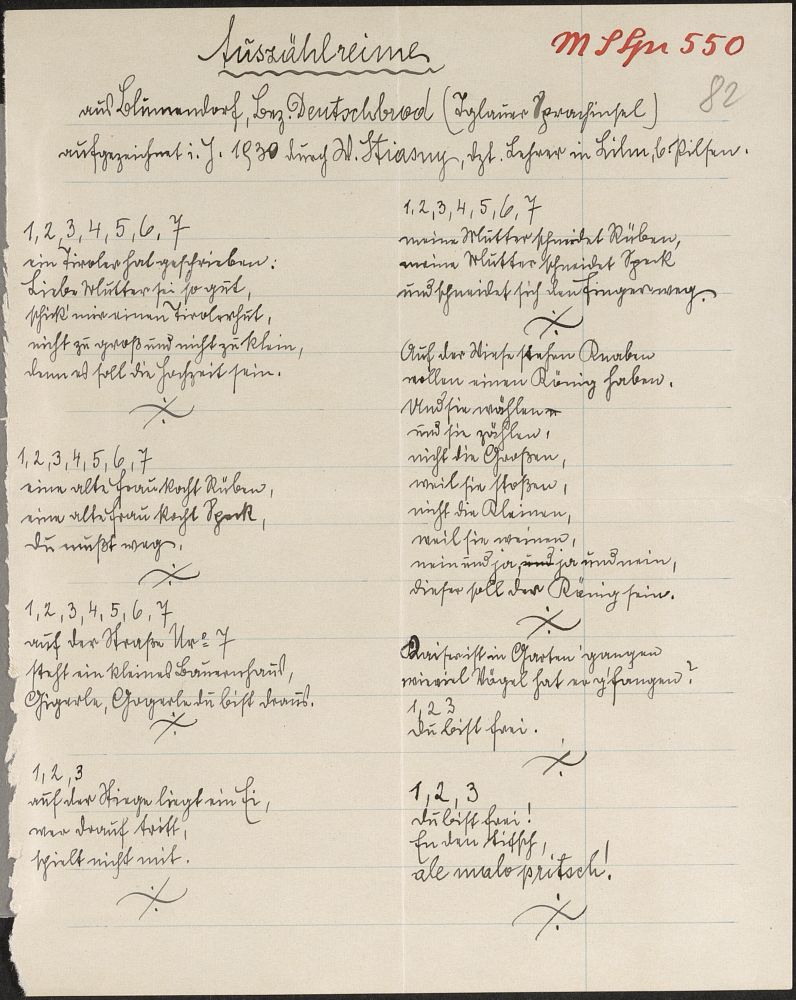 Auszählreime
M S Gr 550
82
aus Blumendorf, Bez. Deutschbrod (Iglauer Sprachinsel)
aufgezeichnet i. J. 1930 durch W. Stiasny, dzt. Lehrer in Lihn, b. Pilsen.
1, 2, 3, 4, 5, 6, 7
ein Tiroler hat geschrieben:
Liebe Mutter sei so gut,
schick' mir einen Tirolerhut,
nicht zu groß und nicht zu klein,
denn es soll die Hochzeit sein.
1, 2, 3, 4, 5, 6, 7
eine alte Frau kocht Rüben,
eine alte Frau kocht Speck,
du mußt weg.
1, 2, 3, 4, 5, 6, 7
auf der Straße Nro 7
steht ein kleines Bauernhaus,
Gigerle, Gagerle du bist draus.
1, 2, 3
auf der Stiege liegt ein Ei,
wer drauf tritt,
spielt nicht mit.
1, 2, 3, 4, 5, 6, 7
meine Mutter schneidet Rüben,
meine Mutter schneidet Speck
und schneidet sich den Finger weg.
Auf der Wiese stehen Knaben
wollen einen König haben.
Und sie wählen
und sie zählen,
nicht die Großen,
weil sie stoßen,
nicht die Kleinen,
weil sie weinen,
nein und ja, und ja und nein,
dieser soll der König sein.
Kaiser ist in Garten 'gangen
wieviel Vögel hat er g'fangen?
1, 2 3
du bist frei.
1, 2, 3
du bist frei!
En den titsch,
ale malo pritsch!